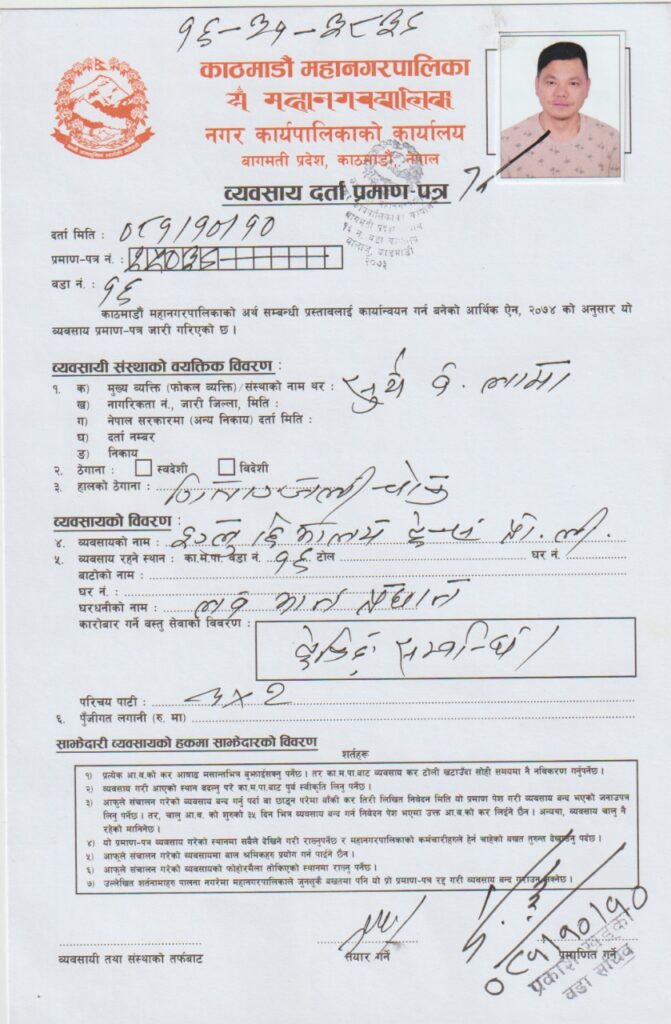 काठमाडौं महानगरपालिका
नगर कार्यपालिकाको कार्यालय
बागमती प्रदेश, काठमाडौं, नेपाल
व्यवसाय दर्ता प्रमाण-पत्र
दर्ता मिति : ०८१/१०/१०
प्रमाण-पत्र नं. :
वडा नं. : १६
काठमाडौं महानगरपालिकाको अर्थ सम्बन्धी प्रस्तावलाई कार्यान्वयन गर्न बनेको आर्थिक ऐन, २०७४ को अनुसार यो
व्यवसाय प्रमाण-पत्र जारी गरिएको छ ।
व्यवसायी संस्थाको वयक्तिक विवरण :
१. क) मुख्य व्यक्ति (फोकल व्यक्ति)/संस्थाको नाम थर : सुर्य ब. लामा
ख) नागरिकता नं., जारी जिल्ला, मिति :
ग) नेपाल सरकारमा (अन्य निकाय) दर्ता मिति :
घ) दर्ता नम्बर
ङ) निकाय
२. ठेगाना : स्वदेशी विदेशी
३. हालको ठेगाना : गितान्जली चोक
व्यवसायको विवरण :
४. व्यवसायको नाम : हिमालय प्रा. ली.
५. व्यवसाय रहने स्थान : का.मे.पा. वडा नं. १६ टोल घर नं.
बाटोको नाम :
घर नं. :
घरधनीको नाम :
कारोबार गर्ने वस्तु सेवाको विवरण :
ट्रेकिङ्ग सम्बन्धि ।
परिचय पाटी : ३×२
६. पुँजीगत लगानी (रु. मा)
साझेदारी व्यवसायको हकमा साझेदारको विवरण
शर्तहरू
१) प्रत्येक आ.व.को कर आषाढ मसान्तभित्र बुझाईसक्नु पर्नेछ । तर का.म.पा.बाट व्यवसाय कर टोली खटाउँदा सोही समयमा नै नविकरण गर्नुपर्नेछ ।
२) व्यवसाय गरी आएको स्थान बदल्नु परे का.म.पा.बाट पुर्व स्वीकृति लिनु पर्नेछ ।
३) आफूले संचालन गरेको व्यवसाय बन्द गर्नु पर्दा वा छाड्न परेमा बाँकी कर तिरी लिखित निवेदन मिति यो प्रमाण पेश गरी व्यवसाय बन्द भएको जनाउपत्र
लिनु पर्नेछ । तर, चालु आ.व. को शुरुको ३५ दिन भित्र व्यवसाय बन्द गर्न निवेदन पेश भएमा उक्त आ.व.को कर लिईने छैन । अन्यथा, व्यवसाय चालु नै
रहेको मानिनेछ ।
४) यो प्रमाण-पत्र व्यवसाय गरेको स्थानमा सबैले देखिने गरी राख्नुपर्नेछ र महानगरपालिकाको कर्मचारीहरुले हेर्न चाहेको बखत तुरुन्त देखाउनु पर्दछ ।
५) आफूले संचालन गरेको व्यवसायमा बाल श्रमिकहरु प्रयोग गर्न पाईने छैन ।
६) आफूले संचालन गरेको व्यवसायको फोहोरमैला तोकिएको स्थानमा राख्नु पर्नेछ ।
७) उल्लेखित शर्तनामाहरु पालना नगरेमा महानगरपालिकाले जुनसुकै बखतमा पनि यो प्रो प्रमाण-पत्र रद्द गरी व्यवसाय बन्द गराउन सक्नेछ ।
०८१/१०/१०
व्यवसायी तथा संस्थाको तर्फबाट तयार गर्ने प्रमाणित गर्ने
प्रकाश खड्का
वडा सचिव